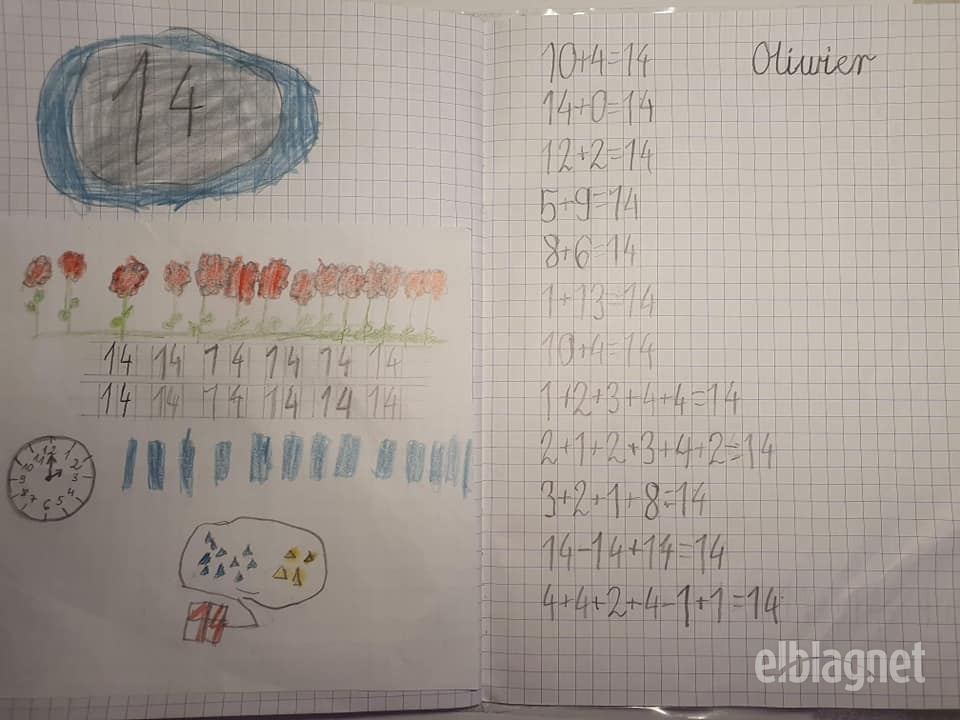 14
14 14 14 14 14 14
14 14 14 14 14 14
12 1 2 3 4 5 6 7 8 9 10 11
14
Oliwier
10+4=14
14+0=14
12+2=14
5+9=14
8+6=14
1+13=14
10+4=14
1+2+3+4+4=14
2+1+2+3+4+2=14
3+2+1+8=14
14-14+14=14
4+4+2+4-1+1=14
elblag.net